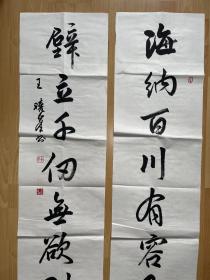 海纳百川有容
壁立千仞無欲